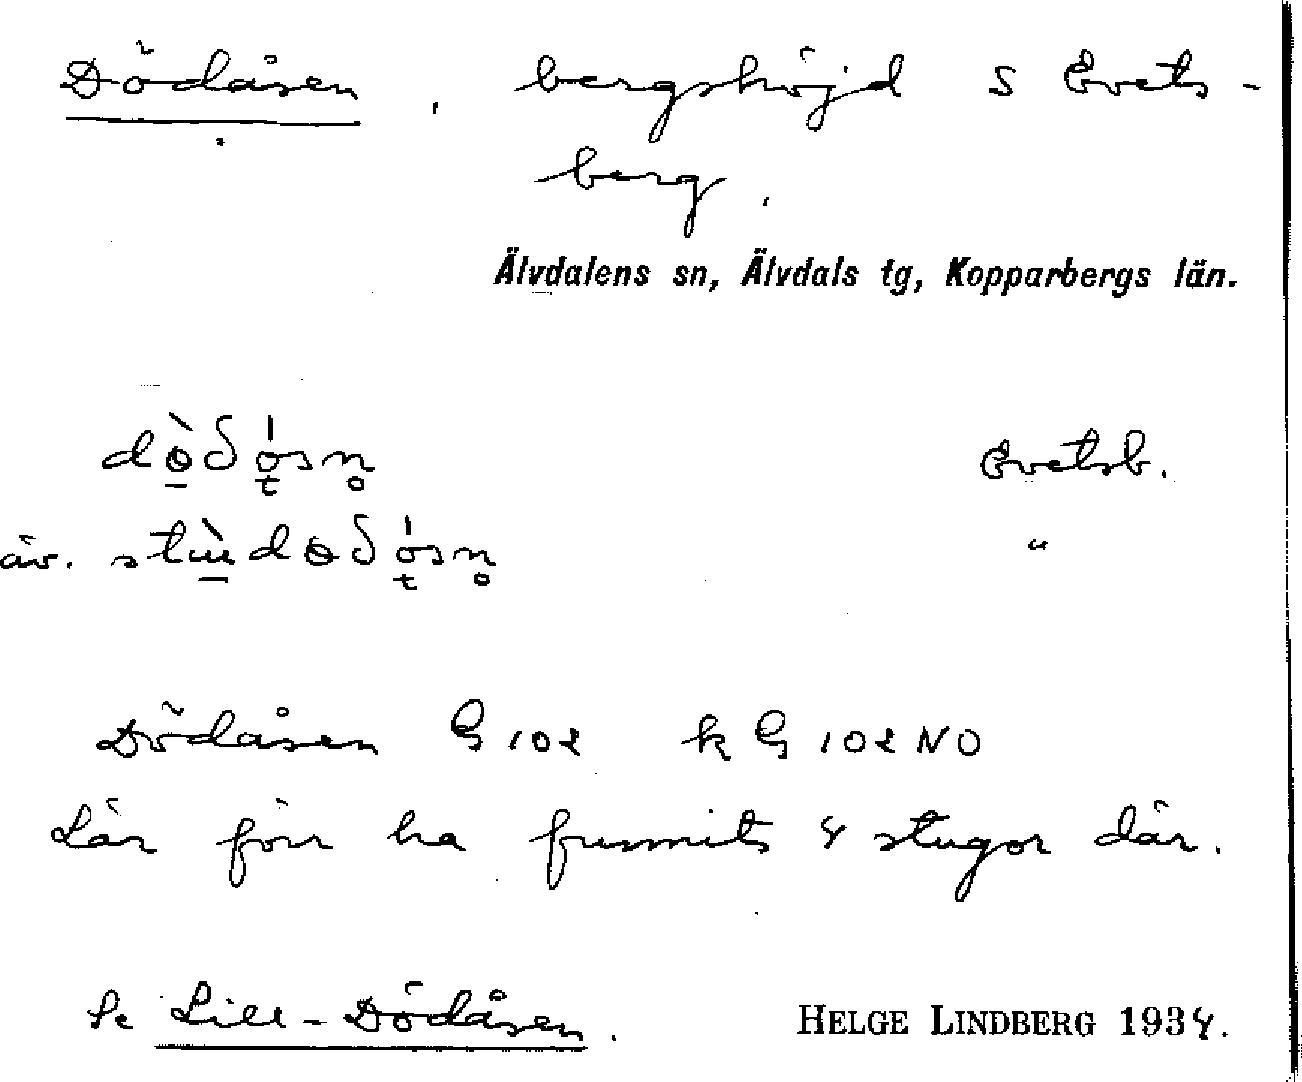 Dödåsen, bergshöjd S Evets-
berg.
Älvdalens sn, Älvdals tg, Kopparbergs län.
Evetsb.
äv. "
Dödåsen G 102 k G 102 NO
Lär förr ha funnits 4 stugor där.
Se Lill-Dödåsen. HELGE LINDBERG 1934.